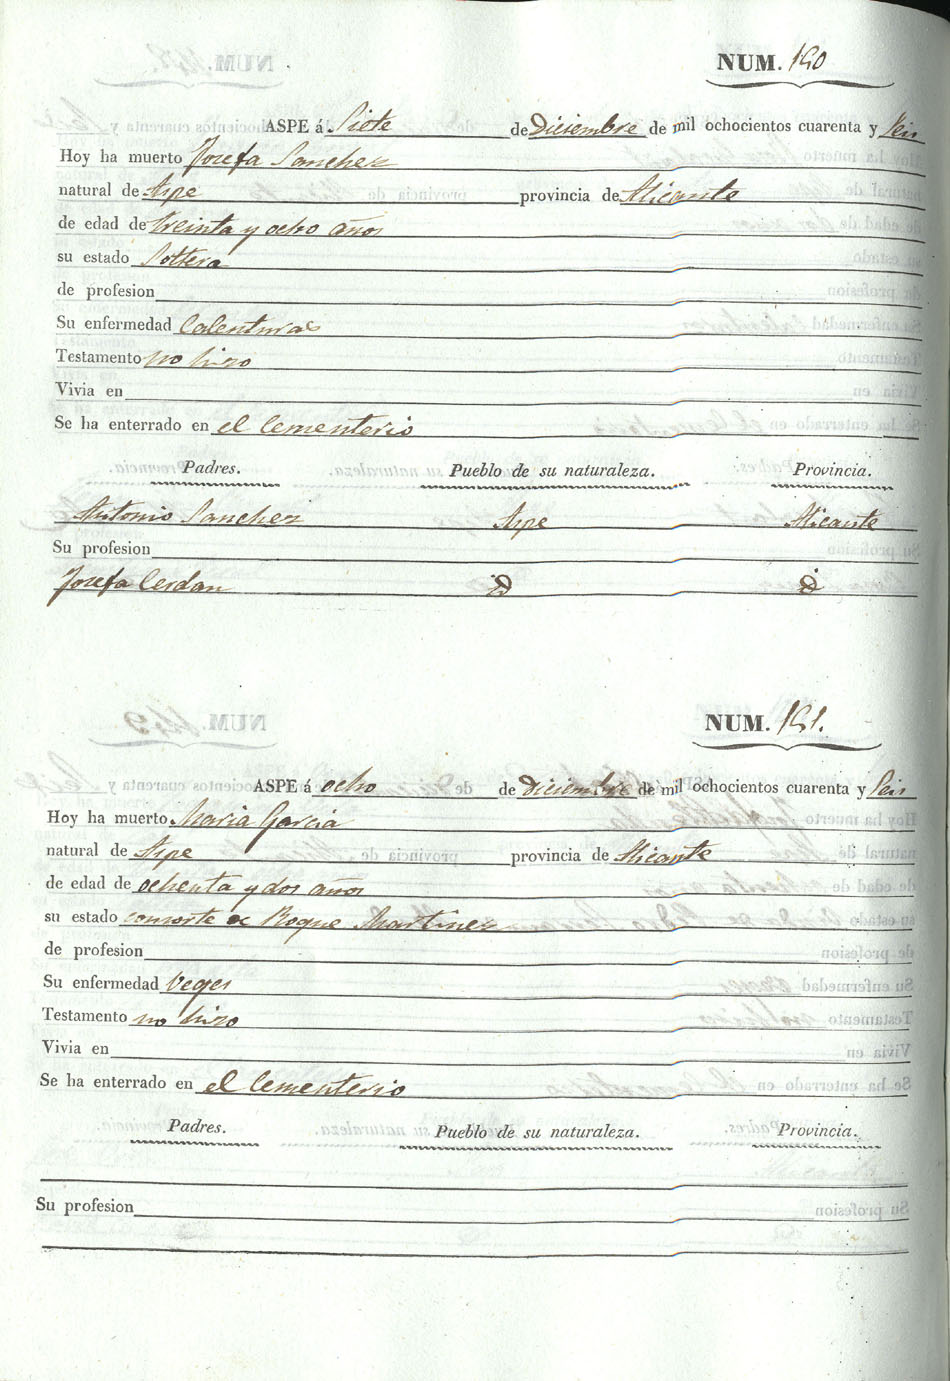 NUM. 150
ASPE á Siete de Diciembre de mil ochocientos cuarenta y Seis
Hoy ha muerto Josefa Sanchez
natural de Aspe provincia de Alicante
de edad de treinta y ocho años
su estado Soltera
de profesion
Su enfermedad Calenturas
Testamento no hizo
Vivia en
Se ha enterrado en el Cementerio
Padres. Pueblo de su naturaleza. Provincia.
Antonio Sanchez Aspe Alicante
Su profesion
Josefa Cerdan
NUM. 151.
ASPE á ocho de Diciembre de mil ochocientos cuarenta y Seis
Hoy ha muerto Maria Garcia
natural de Aspe provincia de Alicante
de edad de ochenta y dos años
su estado consorte de Roque Martinez
de profesion
Su enfermedad veges
Testamento no hizo
Vivia en
Se ha enterrado en el Cementerio
Padres. Pueblo de su naturaleza. Provincia.
Su profesion